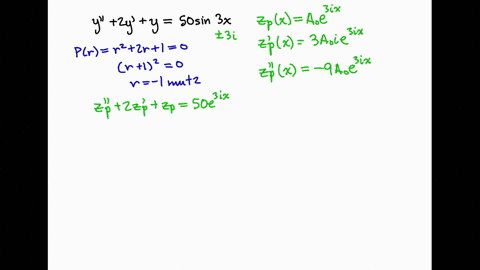 y'' + 2y' + y = 50 sin 3x
± 3i
P(r) = r² + 2r + 1 = 0
(r+1)² = 0
r = -1 mult 2
z_p'' + 2z_p' + z_p = 50e^{3ix}
z_p(x) = A₀e^{3ix}
z_p'(x) = 3A₀ie^{3ix}
z_p''(x) = -9A₀e^{3ix}